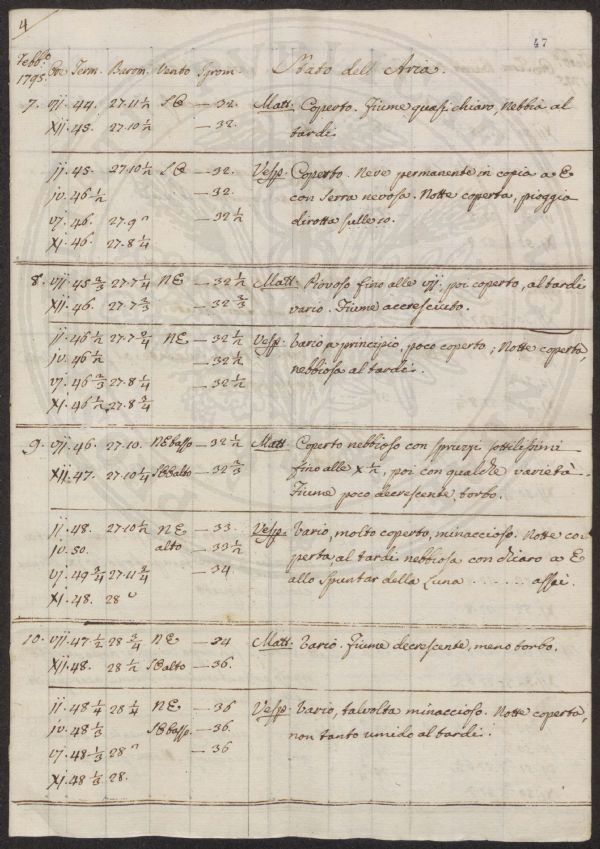 4
47
Febb.o
1795. Ore Term. Barom. Vento Igrom. Stato dell'Aria.
7. vij. 44. 27.11 ½ SE — 32. Matt. Coperto. Fiume quasi chiaro, nebbia al
xij. 45. 27.10 ½ — 32. tardi.
ij. 45. 27.10 ½ SE — 32. Vesp. Coperto. Neve permanente in copia a E
iv. 46 ½ — 32. con serra nevosa. Notte coperta, pioggia
vj. 46. 27.9 " — 32 ½ dirotta sulle 10.
xj. 46. 27.8 ¼
8. vij 45 ⅔ 27.7 ¼ NE — 32 ½ Matt. Piovoso fino alle vij. poi coperto, al tardi
xij. 46. 27.7 ⅔ — 32 ⅔ vario. Fiume accresciuto.
ij. 46 ½ 27.7 ¾ NE — 32 ½ Vesp. Vario a principio, poco coperto; Notte coperta,
iv. 46 ½ — 32 ½ nebbiosa al tardi.
vj. 46 ⅔ 27.8 ¼ — 32 ½
xj. 46 ½ 27.8 ¾
9. vij. 46. 27.10. NE basso — 32 ½ Matt. Coperto nebbioso con spruzzi sottilissimi
xij. 47. 27.10 ¼ SE alto — 32 ⅔ fino alle x ½, poi con qualche varietà.
Fiume poco decrescente, torbo.
ij. 48. 27.10 ½ NE — 33. Vesp. Vario, molto coperto, minaccioso. Notte co-
iv. 50. alto — 33 ½ perta, al tardi nebbiosa con chiaro a E
vj. 49 ¾ 27.11 ¾ — 34 allo spuntar della Luna ........ assai.
xj. 48. 28 "
10. vij. 47 ½ 28 ¾ NE — 34 Matt. Vario. Fiume decrescente, meno torbo.
xij. 48. 28 ½ SE alto — 36.
ij. 48 ¼ 28 ¼ NE — 36 Vesp. Vario, talvolta minaccioso. Notte coperta,
iv. 48 ⅓ SE basso — 36. non tanto umido al tardi.
vj. 48 ⅓ 28 " — 36
xj. 48 ⅓ 28.